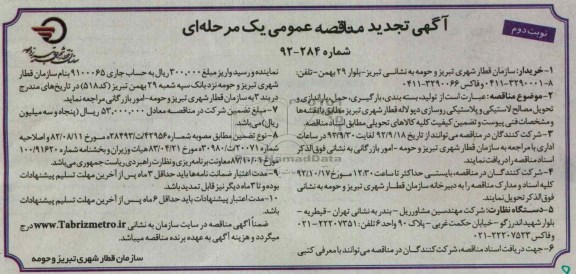 نوبت دوم
آگهی تجدید مناقصه عمومی یک مرحله‌ای
شماره ۲۸۴-۹۲
۱- خریدار: سازمان قطار شهری تبریز و حومه به نشانی تبریز- بلوار ۲۹ بهمن- تلفن:
۳۲۹۰۰۰۱-۰۴۱۱ و فاکس ۳۲۹۰۰۶۶-۰۴۱۱
۲- موضوع مناقصه: عبارت است از تولید، بسته بندی، بارگیری، حمل، باراندازی و
تحویل مصالح لاستیکی و پلاستیکی روسازی دپو لاله قطار شهری تبریز مطابق با نقشه‌ها
و مشخصات فنی پیوست و تضمین کیفیت کلیه کالاهای تحویلی مطابق اسناد مناقصه
۳- شرکت کنندگان در مناقصه می‌توانند از تاریخ ۹۲/۹/۱۸ لغایت ۹۲/۹/۳۰ در ساعات
اداری با مراجعه به سازمان قطار شهری تبریز و حومه - امور بازرگانی به نشانی فوق الذکر
اسناد مناقصه را دریافت نمایند.
۴- شرکت کنندگان در مناقصه، بایستی حداکثر تا ساعت ۱۲:۳۰ مورخ ۹۲/۱۰/۱۷
کلیه اسناد و مدارک مناقصه را به دبیرخانه سازمان قطار شهری تبریز و حومه به نشانی
فوق الذکر تحویل نمایند.
۵- دستگاه نظارت: شرکت مهندسین مشاور ریل - بندر به نشانی تهران- قیطریه -
بلوار شهید اندرزگو - خیابان حکمت غربی - پلاک ۹۰ واحد ۶ تلفن: ۲۲۲۰۷۳۵۱-۰۲۱
و فاکس ۲۲۲۰۷۵۲۳-۰۲۱
۶- جهت دریافت اسناد مناقصه، شرکت کنندگان در مناقصه می‌توانند با معرفی کتبی
نماینده و رسید واریز مبلغ ۳۰۰,۰۰۰ ریال به حساب جاری ۹۱۰۰۰۶۵ بنام سازمان قطار
شهری تبریز و حومه نزد بانک سپه شعبه ۲۹ بهمن تبریز (کد ۵۱۸) در تاریخ‌های مندرج
در بند ۳ به سازمان قطار شهری تبریز و حومه- امور بازرگانی مراجعه نمایند.
۷- مبلغ تضمین شرکت در مناقصه معادل ۵۳,۰۰۰,۰۰۰ ریال (پنجاه و سه میلیون
ریال) می‌باشد.
۸- نوع تضمین مطابق مصوبه شماره ۴۲۹۵۶/ت۲۸۴۹۳ه مورخ ۸۲/۰۸/۱۱ و اصلاحیه
شماره ۲۰۰۷۱/ت۳۰۹۸۰ه مورخ ۸۳/۰۴/۲۱ هیات وزیران و بخشنامه شماره ۱۰۰/۹۱۶۲۰
مورخ ۸۷/۱۰/۰۳ معاونت برنامه‌ریزی و نظارت راهبردی ریاست جمهوری می‌باشد.
۹- مدت اعتبار ضمانت نامه‌ها باید حداقل ۳ ماه پس از آخرین مهلت تسلیم پیشنهادات
بوده و تا ۳ ماه دیگر نیز قابل تمدید باشد.
۱۰- مدت اعتبار پیشنهادات باید حداقل ۶ ماه پس از آخرین مهلت تسلیم پیشنهادات
باشد.
ضمناً آگهی مناقصه در سایت سازمان به نشانی www.Tabrizmetro.ir درج
میگردد و هزینه آگهی به عهده برنده مناقصه میباشد.
سازمان قطار شهری تبریز و حومه